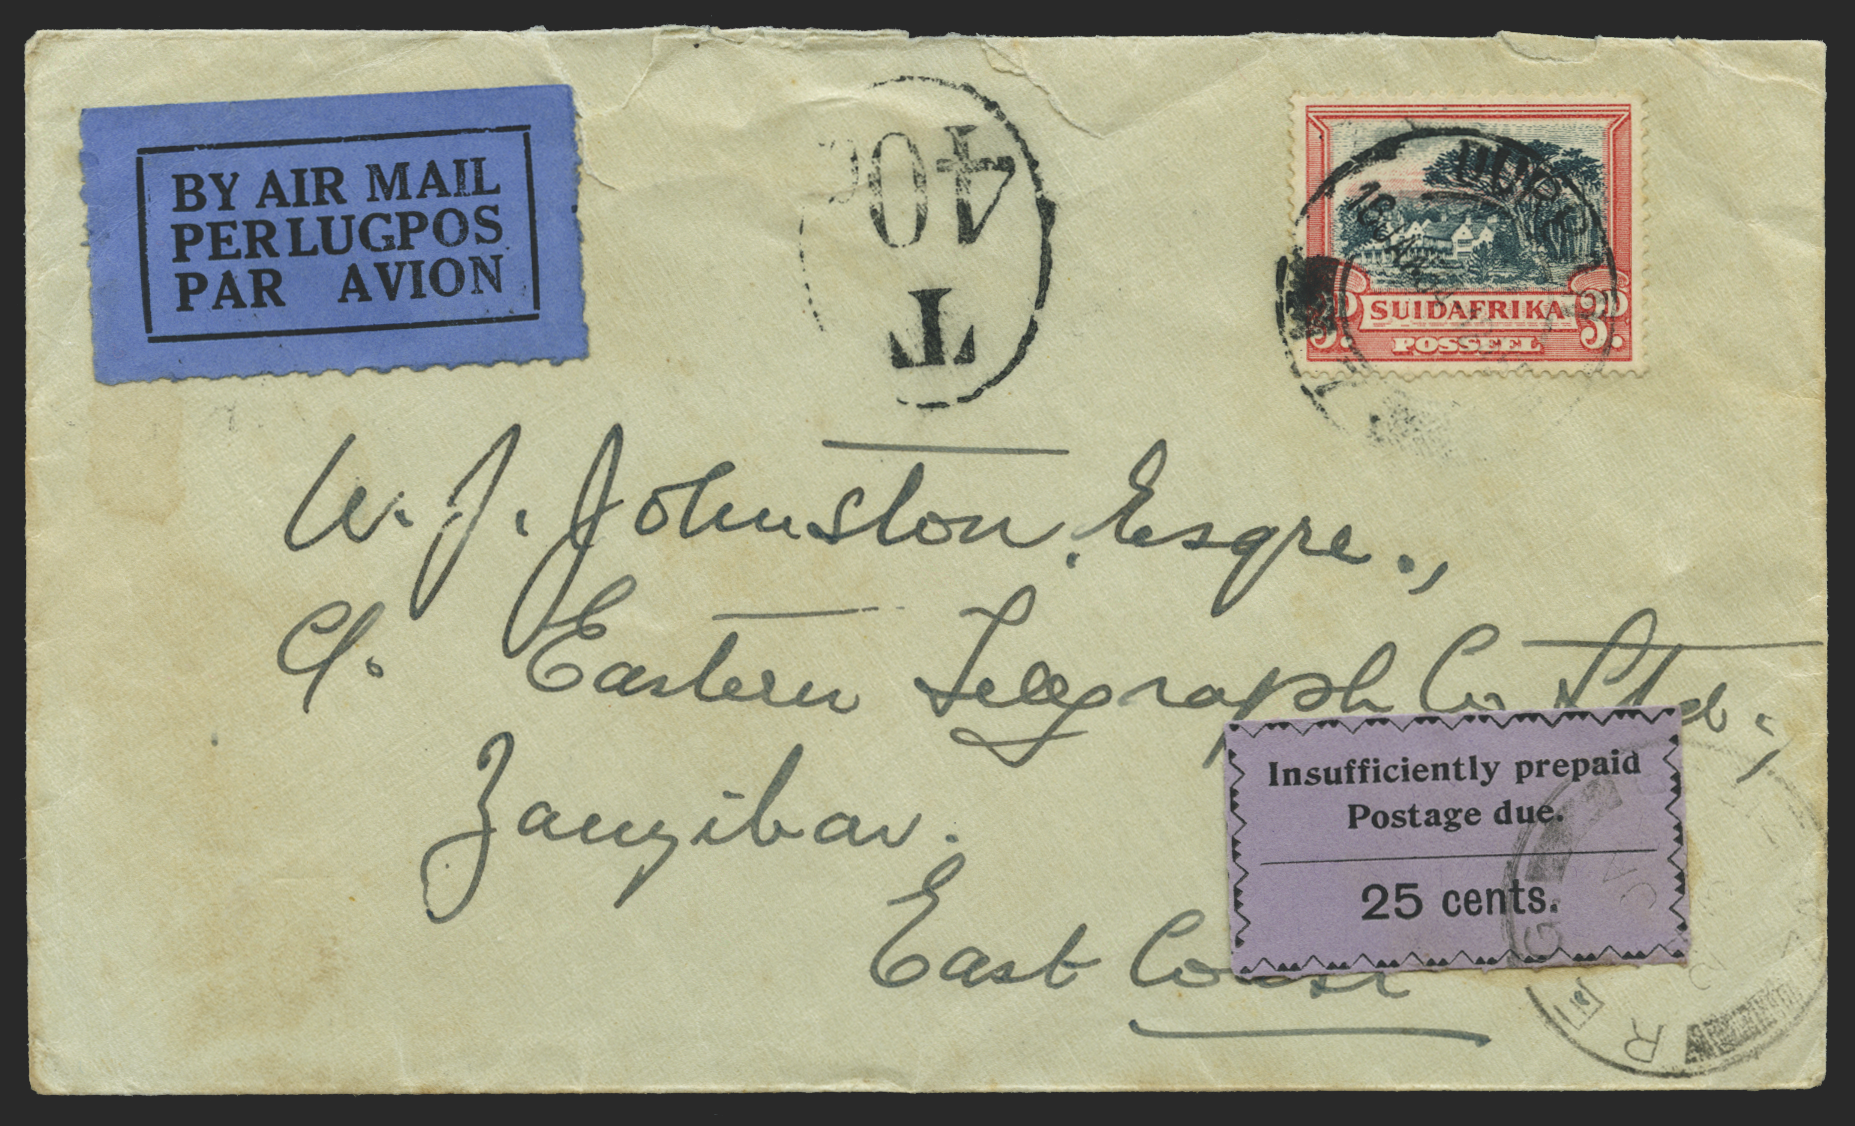 BY AIR MAIL
PER LUGPOS
PAR AVION
40c
T
3D.
SUIDAFRIKA
3D.
POSSEEL
W. J. Johnston, Esqre.,
c/. Eastern Telegraph Co Ltd.,
Zanzibar.
East Coast
Insufficiently prepaid
Postage due.
25 cents.